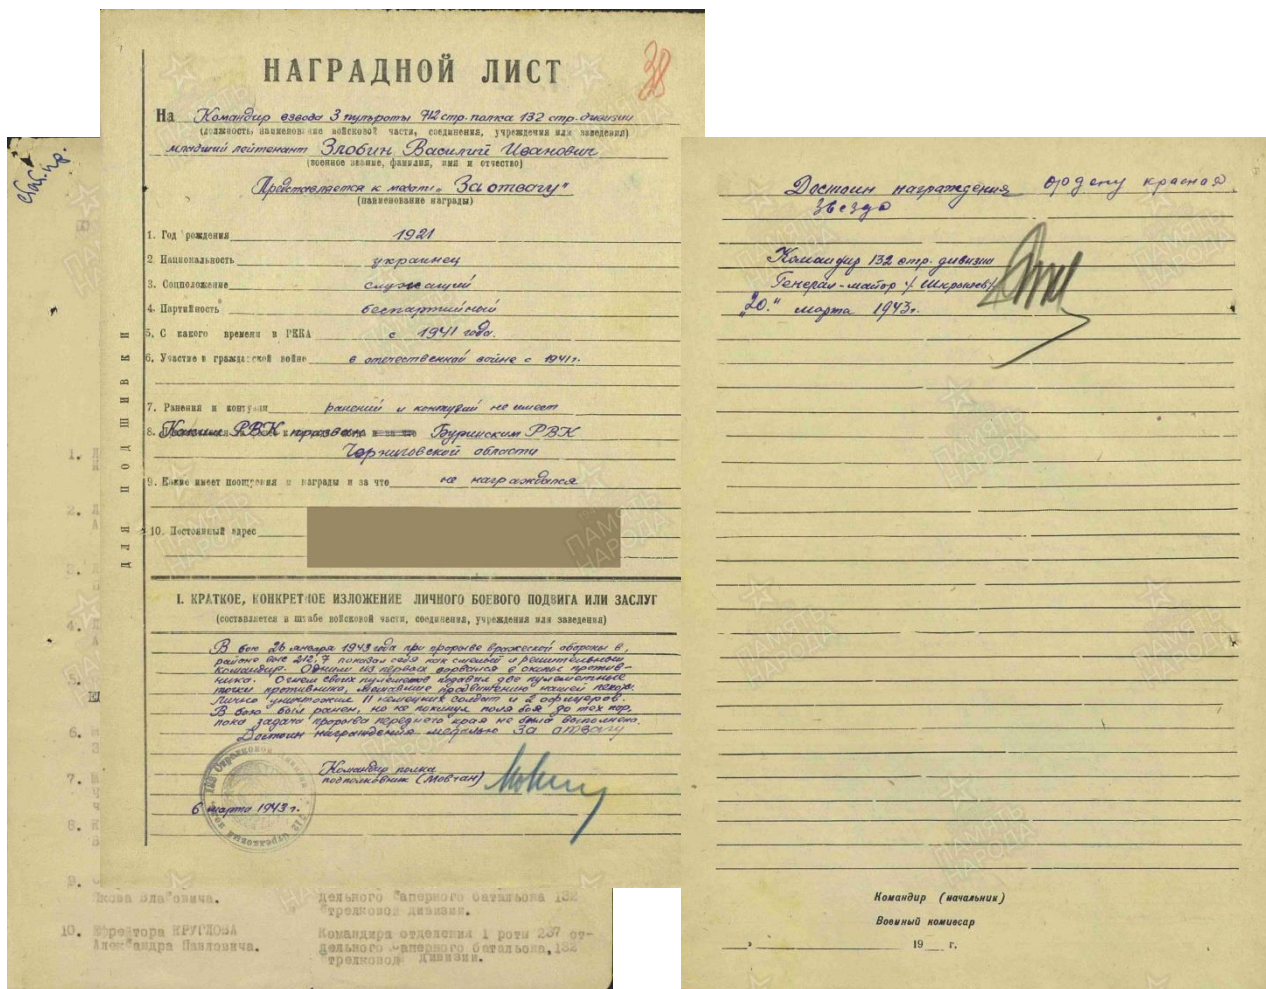 НАГРАДНОЙ ЛИСТ
38
На Командир взвода 3 пульроты 712 стр. полка 132 стр. дивизии
(должность, наименование войсковой части, соединения, учреждения или заведения)
младший лейтенант Злобин Василий Иванович
(военное звание, фамилия, имя и отчество)
Представляется к медали „За отвагу"
(наименование награды)
1. Год рождения 1921
2. Национальность украинец
3. Соцположение служащий
4. Партийность беспартийный
5. С какого времени в РККА с 1941 года.
6. Участие в гражданской войне в отечественной войне с 1941 г.
7. Ранения и контузии ранений и контузий не имеет
8. Каким РВК призван Буринским РВК
Черниговской области
9. Какие имеет поощрения и награды и за что не награждался
10. Постоянный адрес
ДЛЯ ПОДШИВКИ
I. КРАТКОЕ, КОНКРЕТНОЕ ИЗЛОЖЕНИЕ ЛИЧНОГО БОЕВОГО ПОДВИГА ИЛИ ЗАСЛУГ
(составляется в штабе войсковой части, соединения, учреждения или заведения)
В бою 26 января 1943 года при прорыве вражеской обороны в,
районе выс 212,7 показал себя как смелый и решительный
командир. Одним из первых ворвался в окопы против-
ника. Огнем своих пулеметов подавил две пулеметные
точки противника, мешавшие продвижению нашей пехоты.
Лично уничтожил 11 немецких солдат и 2 офицеров.
В бою был ранен, но не покинул поля боя до тех пор,
пока задача прорыва переднего края не была выполнена.
Достоин награждения медалью За отвагу
Командир полка
подполковник (Мовчан)
6 марта 1943 г.
Достоин награждения ордену красная
звезда
Командир 132 стр. дивизии
Генерал-майор /Шкрылев/
„20." марта 1943 г.
Командир (начальник)
Военный комиссар
19 г.
1.
2.
3.
4.
5.
6.
7.
8.
9.
дельного саперного батальона 132
стрелковой дивизии.
10. Ефрейтора КРУГЛОВА
Александра Павловича.
Командира отделения 1 роты 237 от-
дельного саперного батальона, 132
стрелковой дивизии.
ПАМЯТЬ НАРОДА